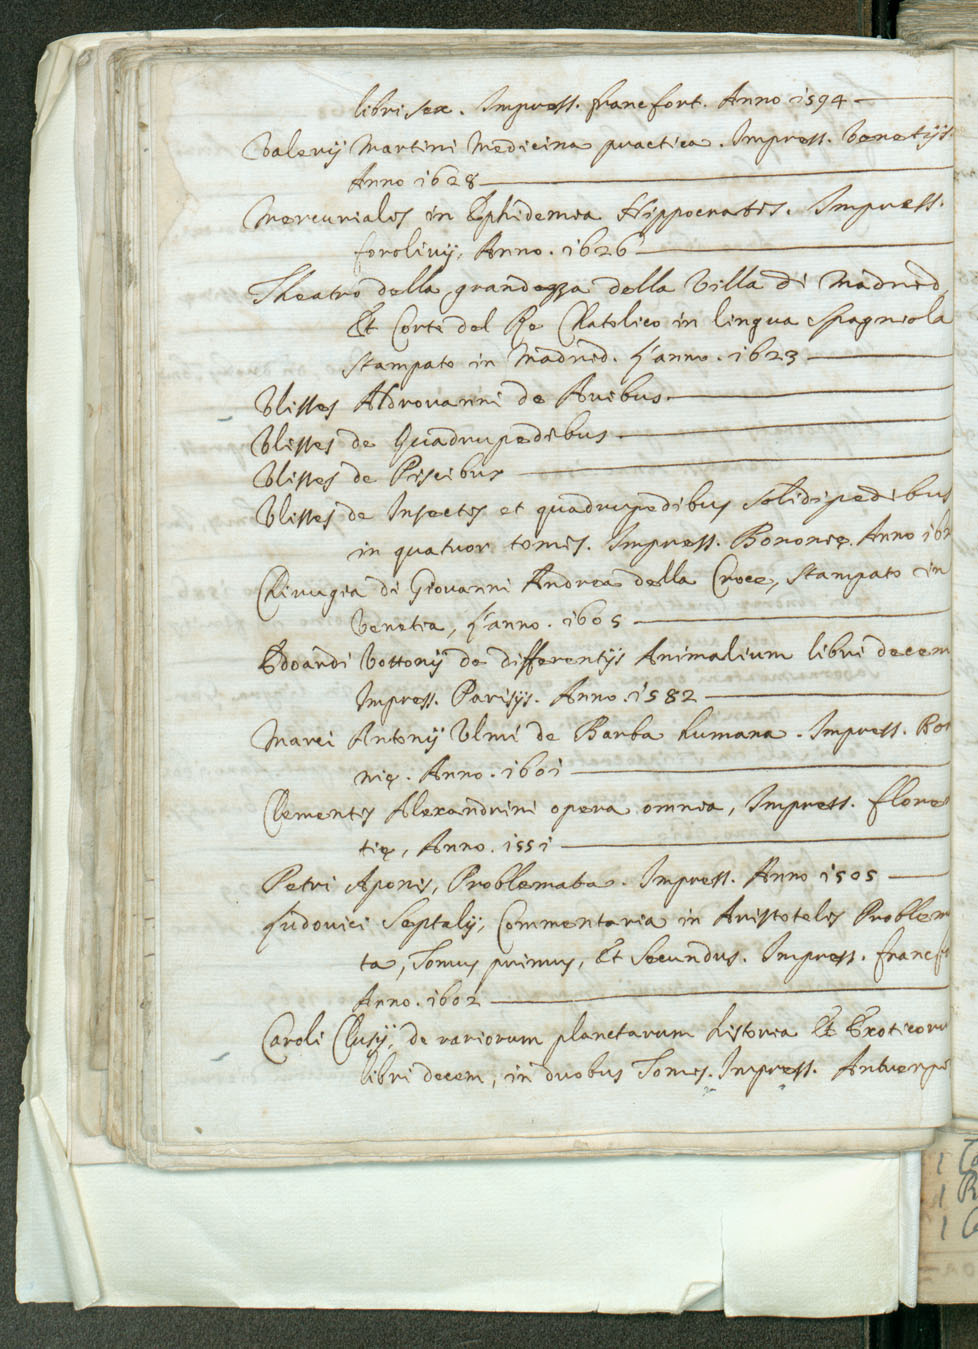 libri sex. Impress. francfort. Anno 1594
Valerij Martini Medicina practica. Impress. Venetijs
Anno 1628
Mercurialis in Ephidemia Hippocratis. Impress.
forolivij, Anno. 1626
Theatro della grandezza della Villa di Madrid,
Et Corte del Re Chatolico in lingua Spagniola
stampato in Madrid. L'anno. 1623
Ulisses Aldrovanni de Avibus.
Ulisses de Quadrupedibus.
Ulisses de Piscibus
Ulisses de Insectis et quadrupedibus Solidipedibus
in quatuor tomis. Impress. Bononię. Anno 162
Chirugia di Giovanni Andrea della Croce, stampato in
Venetia, L'anno. 1605
Edoardi Vottonij de differentijs Animalium libri decem
Impress. Parisijs. Anno. 1582
Marci Antonij Ulmi de Barba humana. Impress. Bo
nię. Anno. 1601
Clementis Alexandrini opera omnia, Impress. flore
tię, Anno. 1551
Petri Aponis, Problemata. Impress. Anno 1505
Ludovici Septalij, Commentaria in Aristotelis Problem
ta, Tomus primus, Et Secundus. Impress. francf
Anno. 1602
Caroli Clusij, de variorum planctarum historia Et Exoticoru
libri decem, in duobus Tomis. Impress. Antuerpi